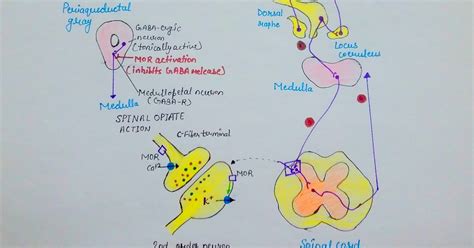 Periaqueductal
gray
GABA-ergic
neuron
(tonically active)
MOR activation
(inhibits GABA release)
Medullopetal neuron
(GABA-R)
Medulla
SPINAL OPIATE
ACTION
C-Fiber terminal
MOR
Ca2+
MOR
K+
2nd order neuron
Dorsal
raphe
Locus
coeruleus
Medulla
Spinal cord